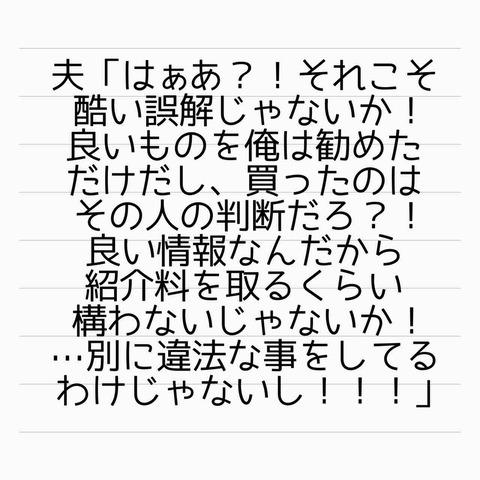 夫「はぁあ？！それこそ
酷い誤解じゃないか！
良いものを俺は勧めた
だけだし、買ったのは
その人の判断だろ？！
良い情報なんだから
紹介料を取るくらい
構わないじゃないか！
…別に違法な事をしてる
わけじゃないし！！！」